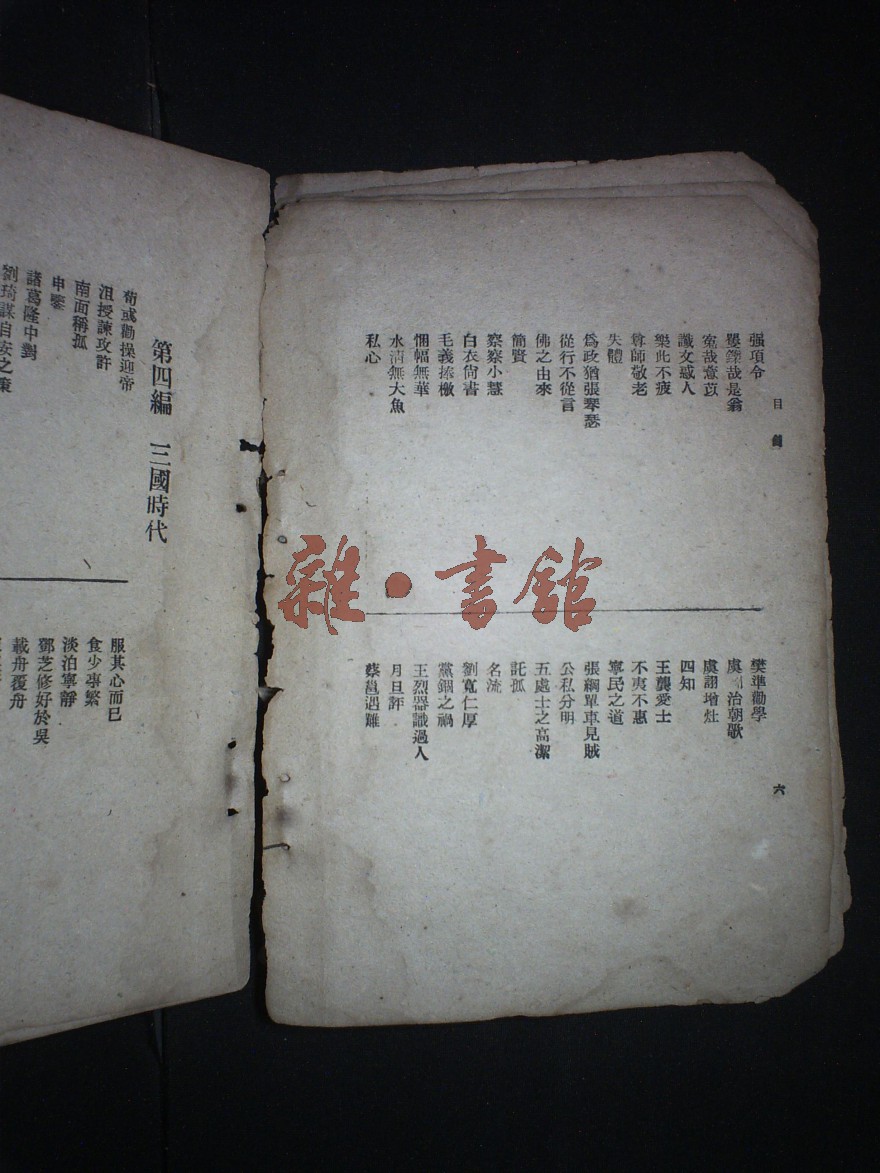 目錄
六
强項令
矍鑠哉是翁
寃哉薏苡
讖文惑人
樂此不疲
尊師敬老
失體
爲政猶張琴瑟
從行不從言
佛之由來
簡賢
察察小慧
白衣尙書
毛義捧檄
悃愊無華
水淸無大魚
私心
樊準勸學
虞詡治朝歌
虞詡增灶
四知
王龔愛士
不夷不惠
寧民之道
張綱單車見賊
公私分明
五處士之高潔
託孤
名流
劉寬仁厚
黨錮之禍
王烈器識過人
月旦評
蔡邕遇難
第四編 三國時代
荀彧勸操迎帝
沮授諫攻許
南面稱孤
申鑒
諸葛隆中對
劉琦謀自安之策
服其心而已
食少事繁
淡泊寧靜
鄧芝修好於吳
載舟覆舟
雜·書館